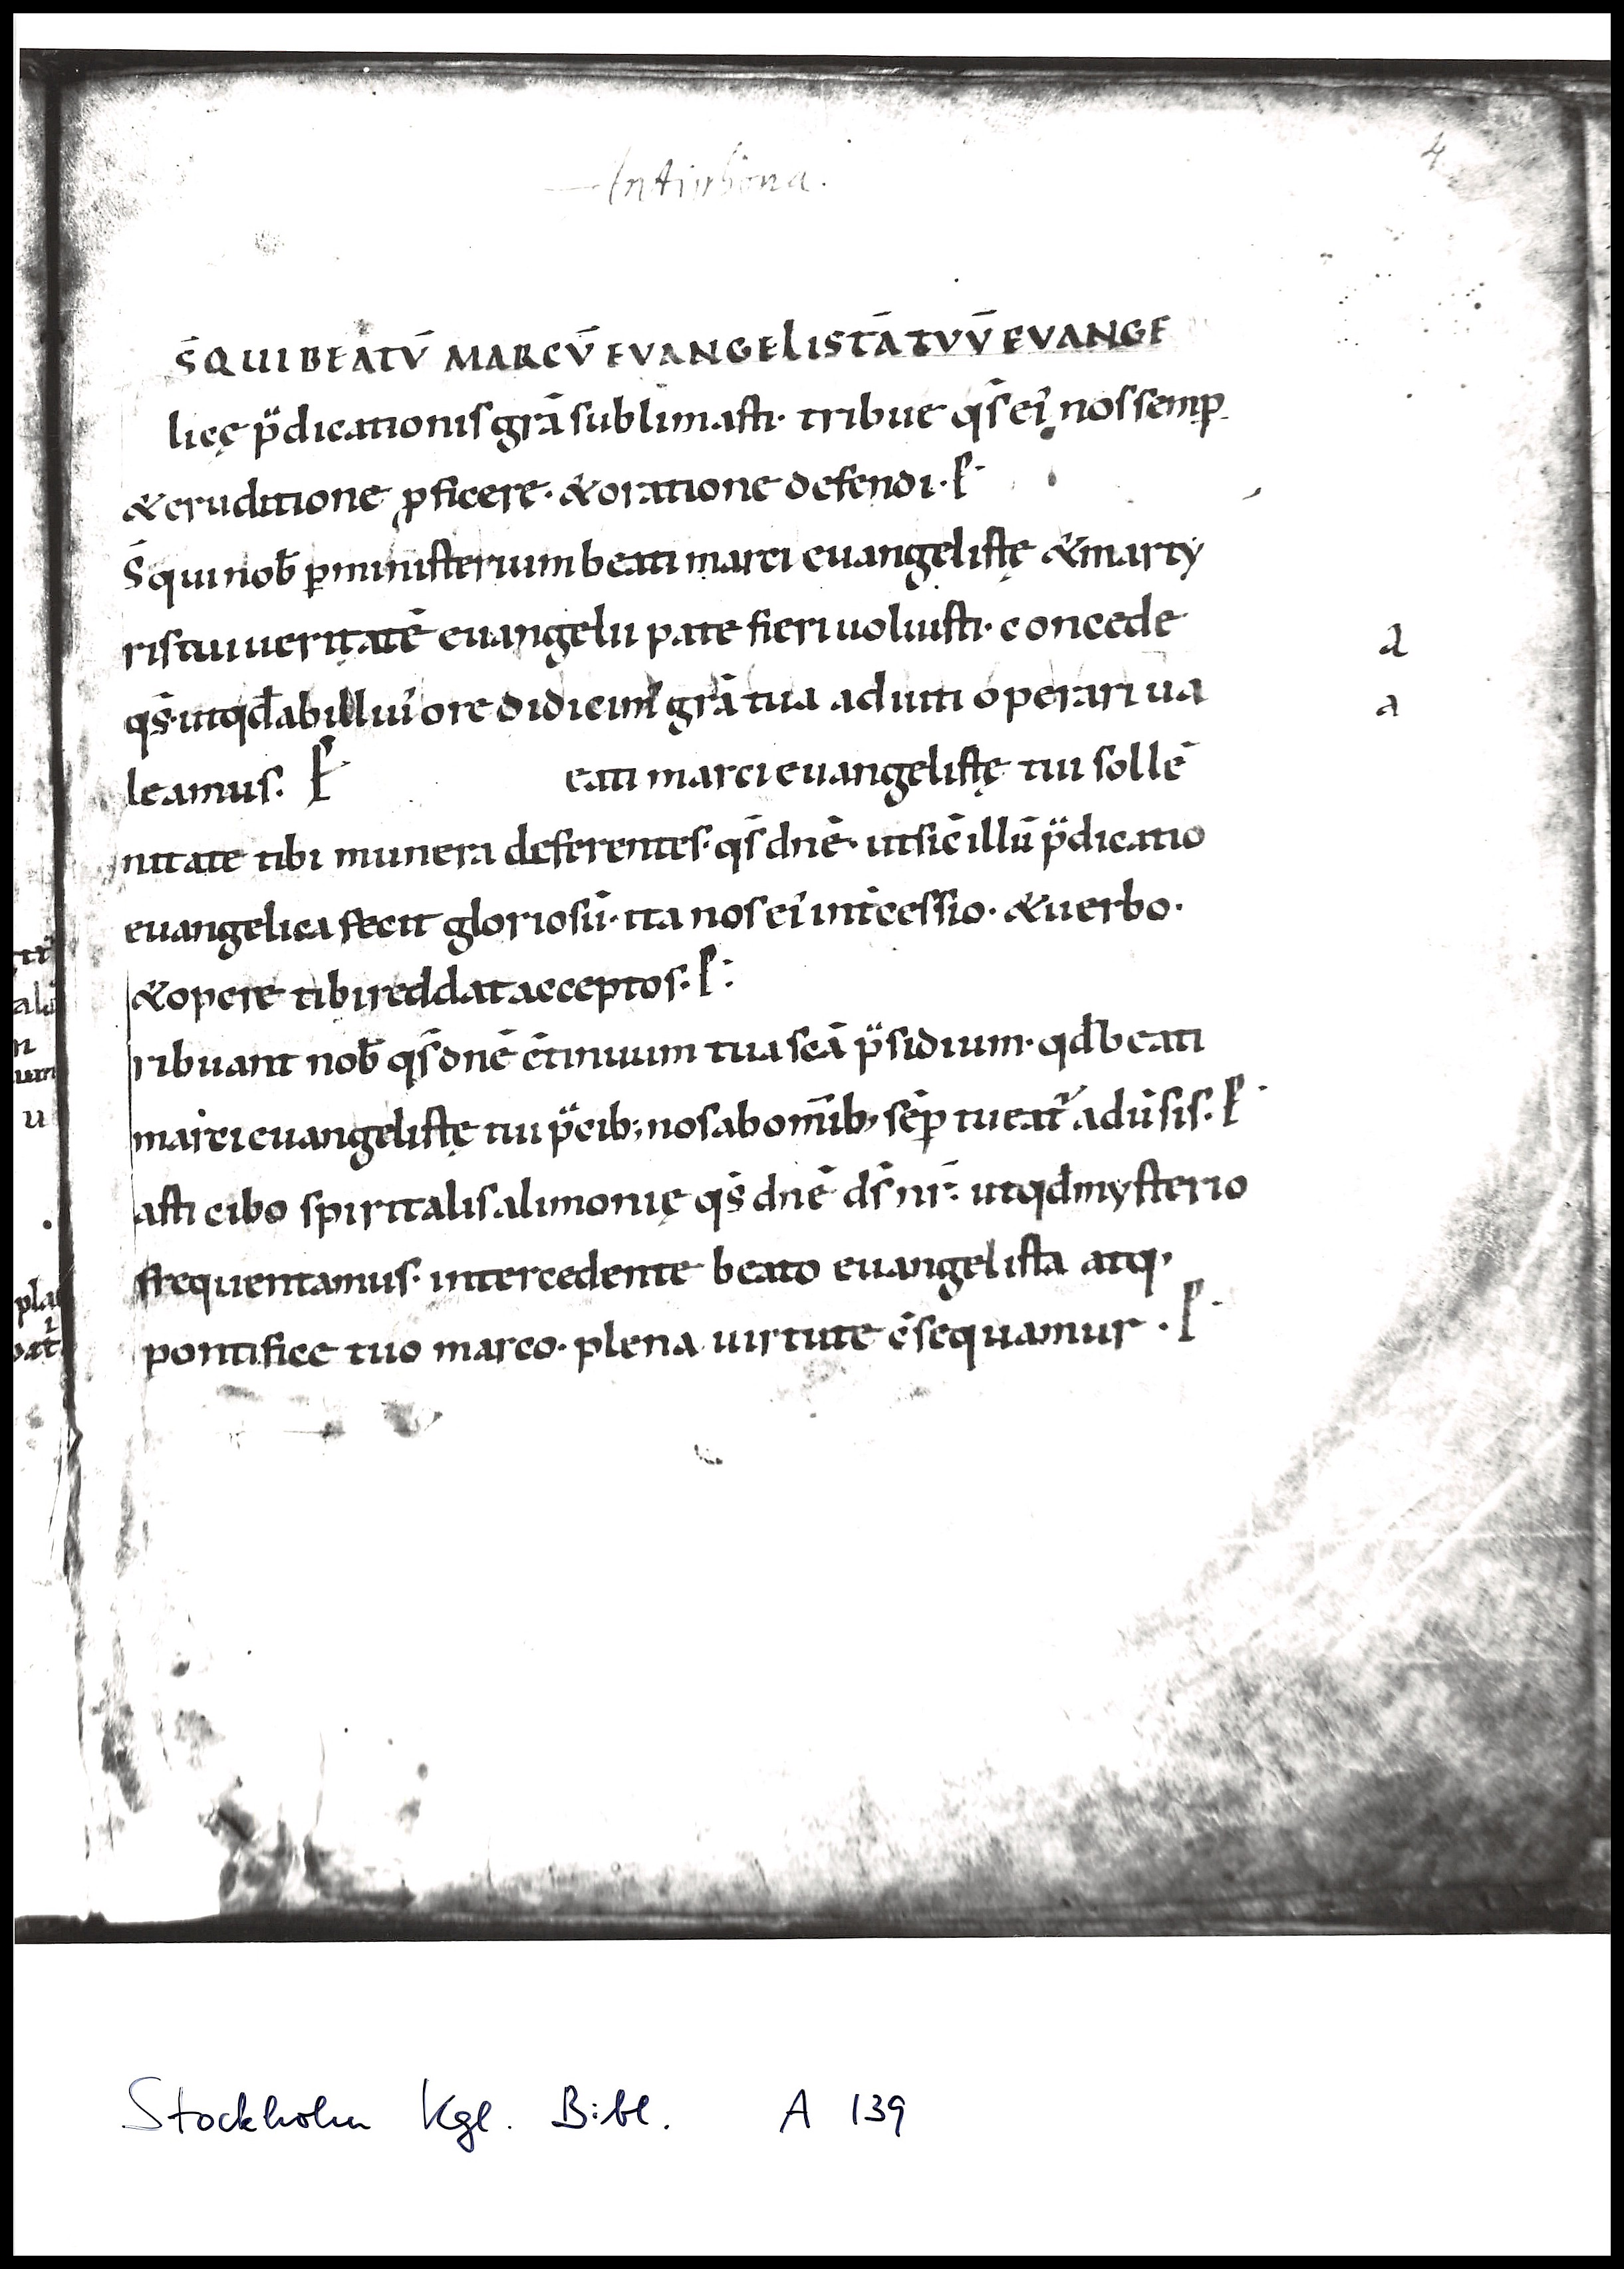 Antiphona.
4
S̄ QUI BEATV̄ MARCV̄ EVANGELISTĀ TVV̄ EVANGE
licę p̈dicationis grā sublimasti· tribue qs̄ eı᷒ nos semꝑ
& eruditione ꝓficere· & oratione defendi· ꝑ
S̄ qui nob̄ ꝑ ministerium beati marci euangelistę & marty
ris tui ueritatē euangelii pate fieri uoluisti· concede
qs̄· ut qd̄ ab illiuı᷒ ore didicim᷒ grā tua adiuti operari ua
leamus. ꝑ eati marci euangelistę tui sollē
nitate tibi munera deferentes· qs̄ dnē· ut sic̄ illū p̈dicatio
euangelica fecit gloriosū· ita nos eı᷒ int̄cessio· & uerbo·
& opere tibi reddat acceptos· ꝑ:
ribuant nob̄ qs̄ dnē c̄tinuum tua scā p̈sidium· qd̄ beati
marci euangelistę tui p̈cib; nos ab om̄ib; sēp tueat᷑ adūsis. ꝑ
asti cibo spiritalis alimonię qs̄ dnē ds̄ nr̄: ut qd̄ mysterio
frequentamus· intercedente beato euangelista atq·
pontifice tuo marco· plena uirtute c̄sequamur · ꝑ
a
a
ala
um
u
pla
Stockholm Kgl. Bibl. A 139